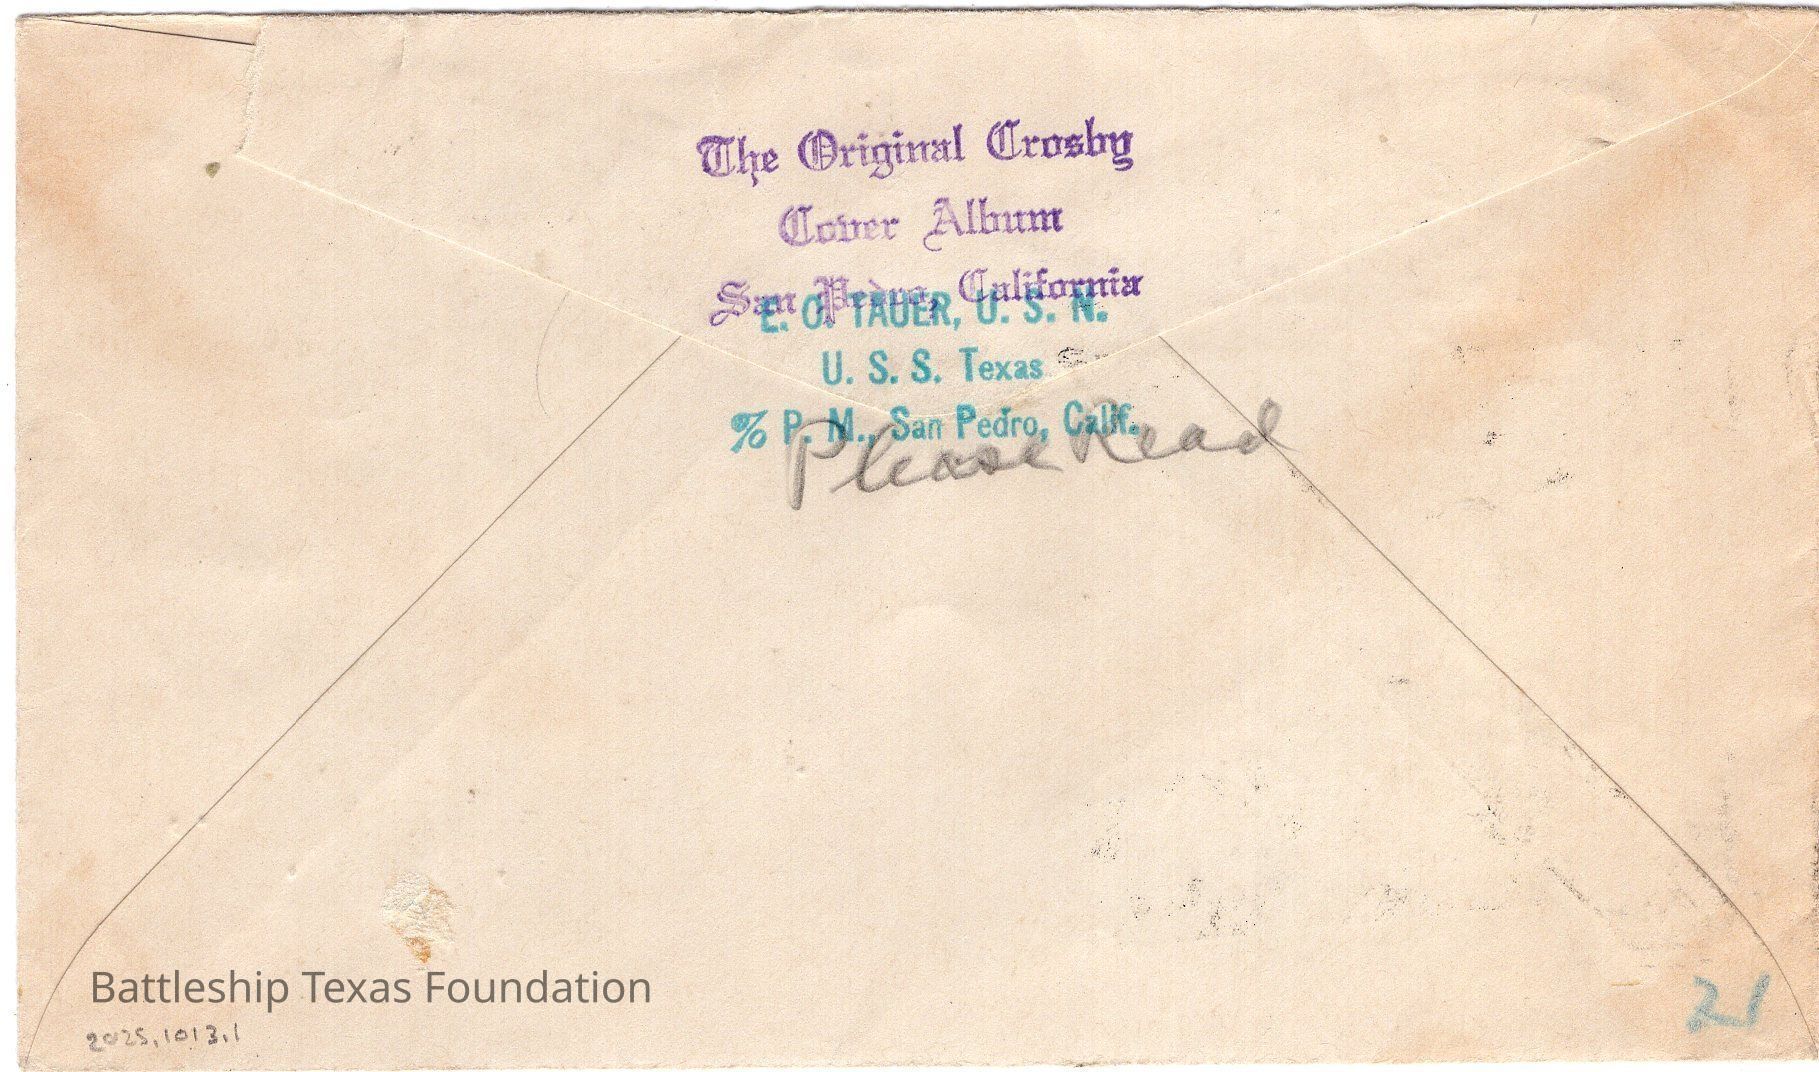 The Original Crosby
Cover Album
San Pedro, California
E. O. TAUER, U. S. N.
U. S. S. Texas
% P. M., San Pedro, Calif.
Please Read
Battleship Texas Foundation
2025.1013.1
21